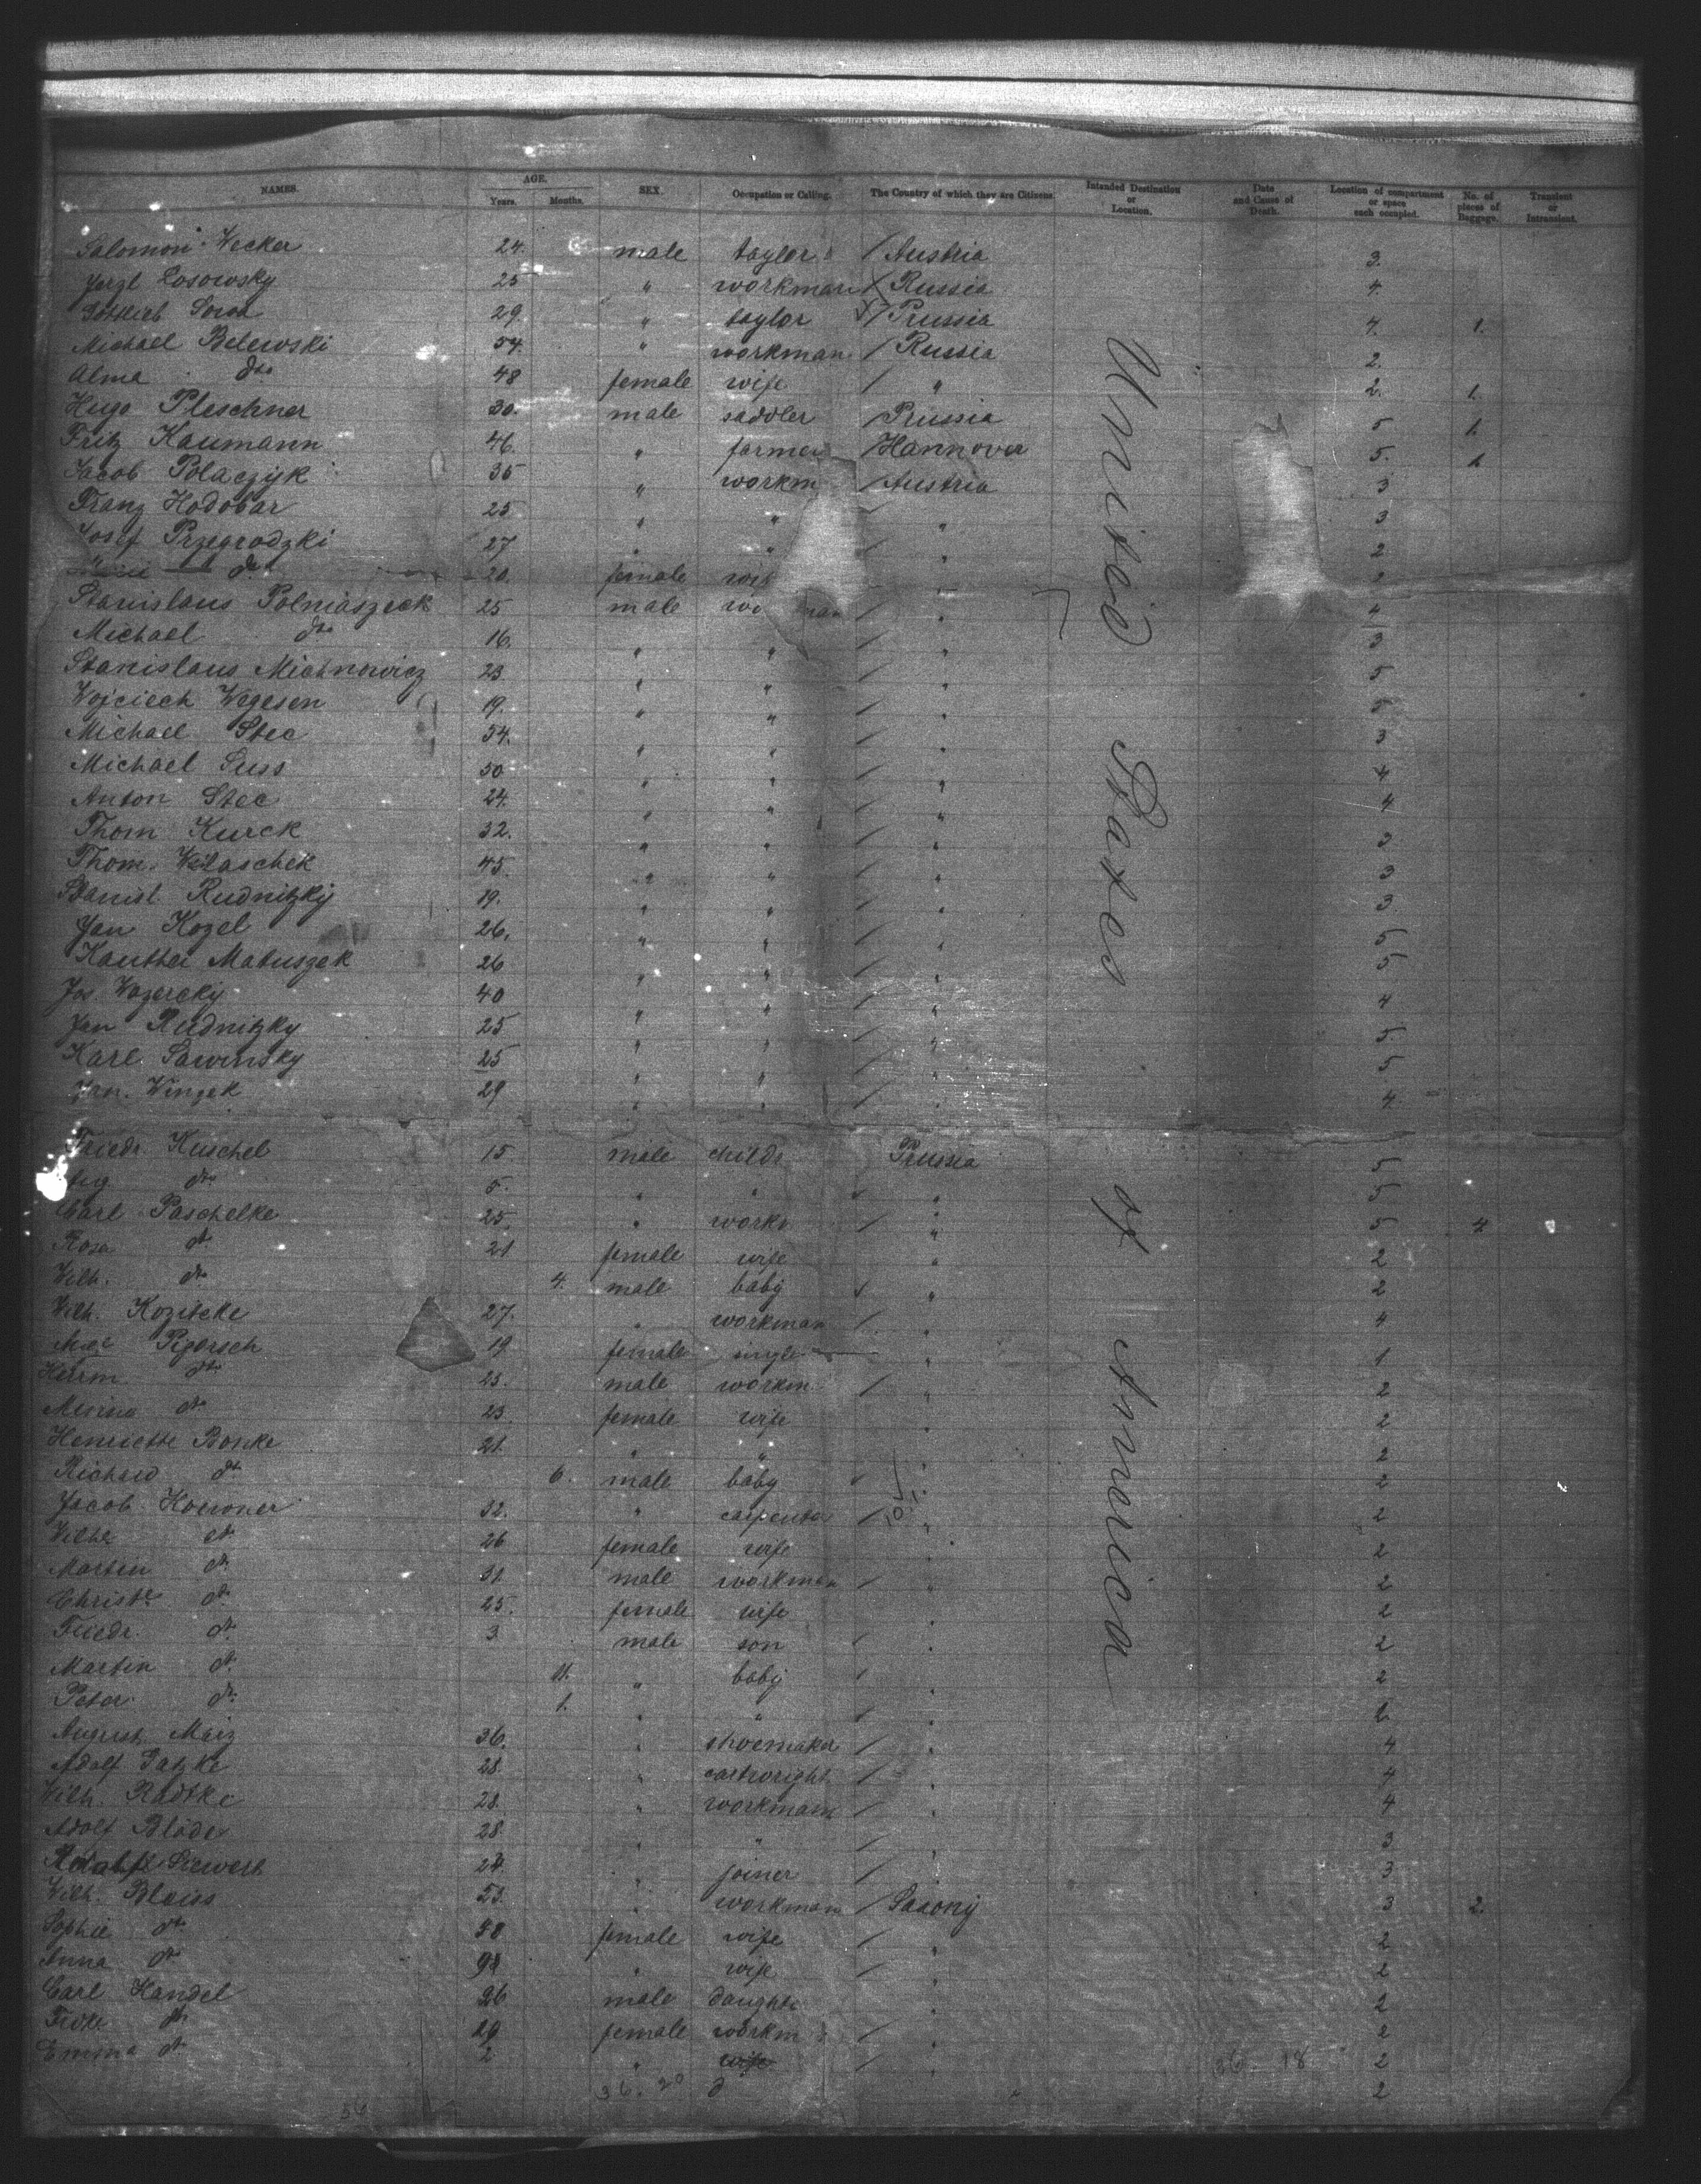 NAMES. AGE. Years. Months. SEX. Occupation or Calling. The Country of which they are Citizens. Intended Destination or Location. Date and Cause of Death. Location of compartment or space each occupied. No. of pieces of Baggage. Transient or Intransient.
United States of America
Salomon Wecker 24. male taylor / Austria 3.
Losowsky 25 " workman Russia 4.
29. " taylor / Prussia 4. 1.
Michael Belewski 54. " workman / Russia 2.
Alma dto 48 female wife / " 2. 1.
Hugo Pleschner 30. male saddler / Prussia 5 1.
Fritz Kaumann 46. " farmer / Hannover 5. 1.
Jacob Polaczyk 35 " workm / Austria 3
Franz Hodobar 25 " " / " 3
Josef Przegrodzki 27 " " / " 2
dto 20. female "
Stanislaus Polniaszeck 25 male / " 4
Michael dto 16. " " / " 3
Stanislaus Michnowicz 23. " " / " 5
Wojciech Wegesen 19. " " / " 5
Michael Stec 54. " " / " 3
Michael Suss 50 " " / " 4
Anton Stec 24. " " / " 4
Thom Kurck 32. " " / " 3
Thom. 45. " " / " 3
Stanisl. Rudnitzky 19. " " / " 3
Jan Kozel 26. " " / " 5
Matuszek 26 " " / " 5
Jos. 40 " " / " 4
Jan Rudnitzky 25 " " / " 5.
Karl Sawinsky 25 " " / " 5
Jan. Winzek 29 " " / " 4.
Friedr. Kuschel 15 male child Prussia 5
Aug. dto 5. " " " 5
Carl Paschelke 25. " workm / " 5 4
Rosa dto 21 female wife " 2
Wilh. dto 4. male baby " 2
Wilh. Kozitcke 27. " workman / " 4
Pigorsch 19 female single " 1
Herrm dto 25. male workm / " 2
Minna dto 23. female wife " 2
Henriette Bonke 21. " " " 2
Richard dto 6. male baby " 2
Jacob 32. " carpenter / " 2
dto 26 female wife " 2
Martin dto 31. male workman / " 2
Christe dto 25. female wife " 2
Friedr. dto 3 male son / " 2
Martin dto 11. " baby / " 2
Peter dto 1. " " / " 2
August 36. " shoemaker / " 4
Adolf 28. " cartwright / " 4
Wilh. Radtke 28. " workmann / " 4
Adolf 28. " " / " 3
Siewert 24. " joiner / " 3
Wilh. Bleiss 53. " workman / Saxony 3 2.
Sophie dto female wife / " 2
Anna dto " wife / " 2
Carl Handel 26 male daughter " 2
dto 29 female workm / " 2
Emma dto 2 " wife / " 36 18 2
36. 20 " 2